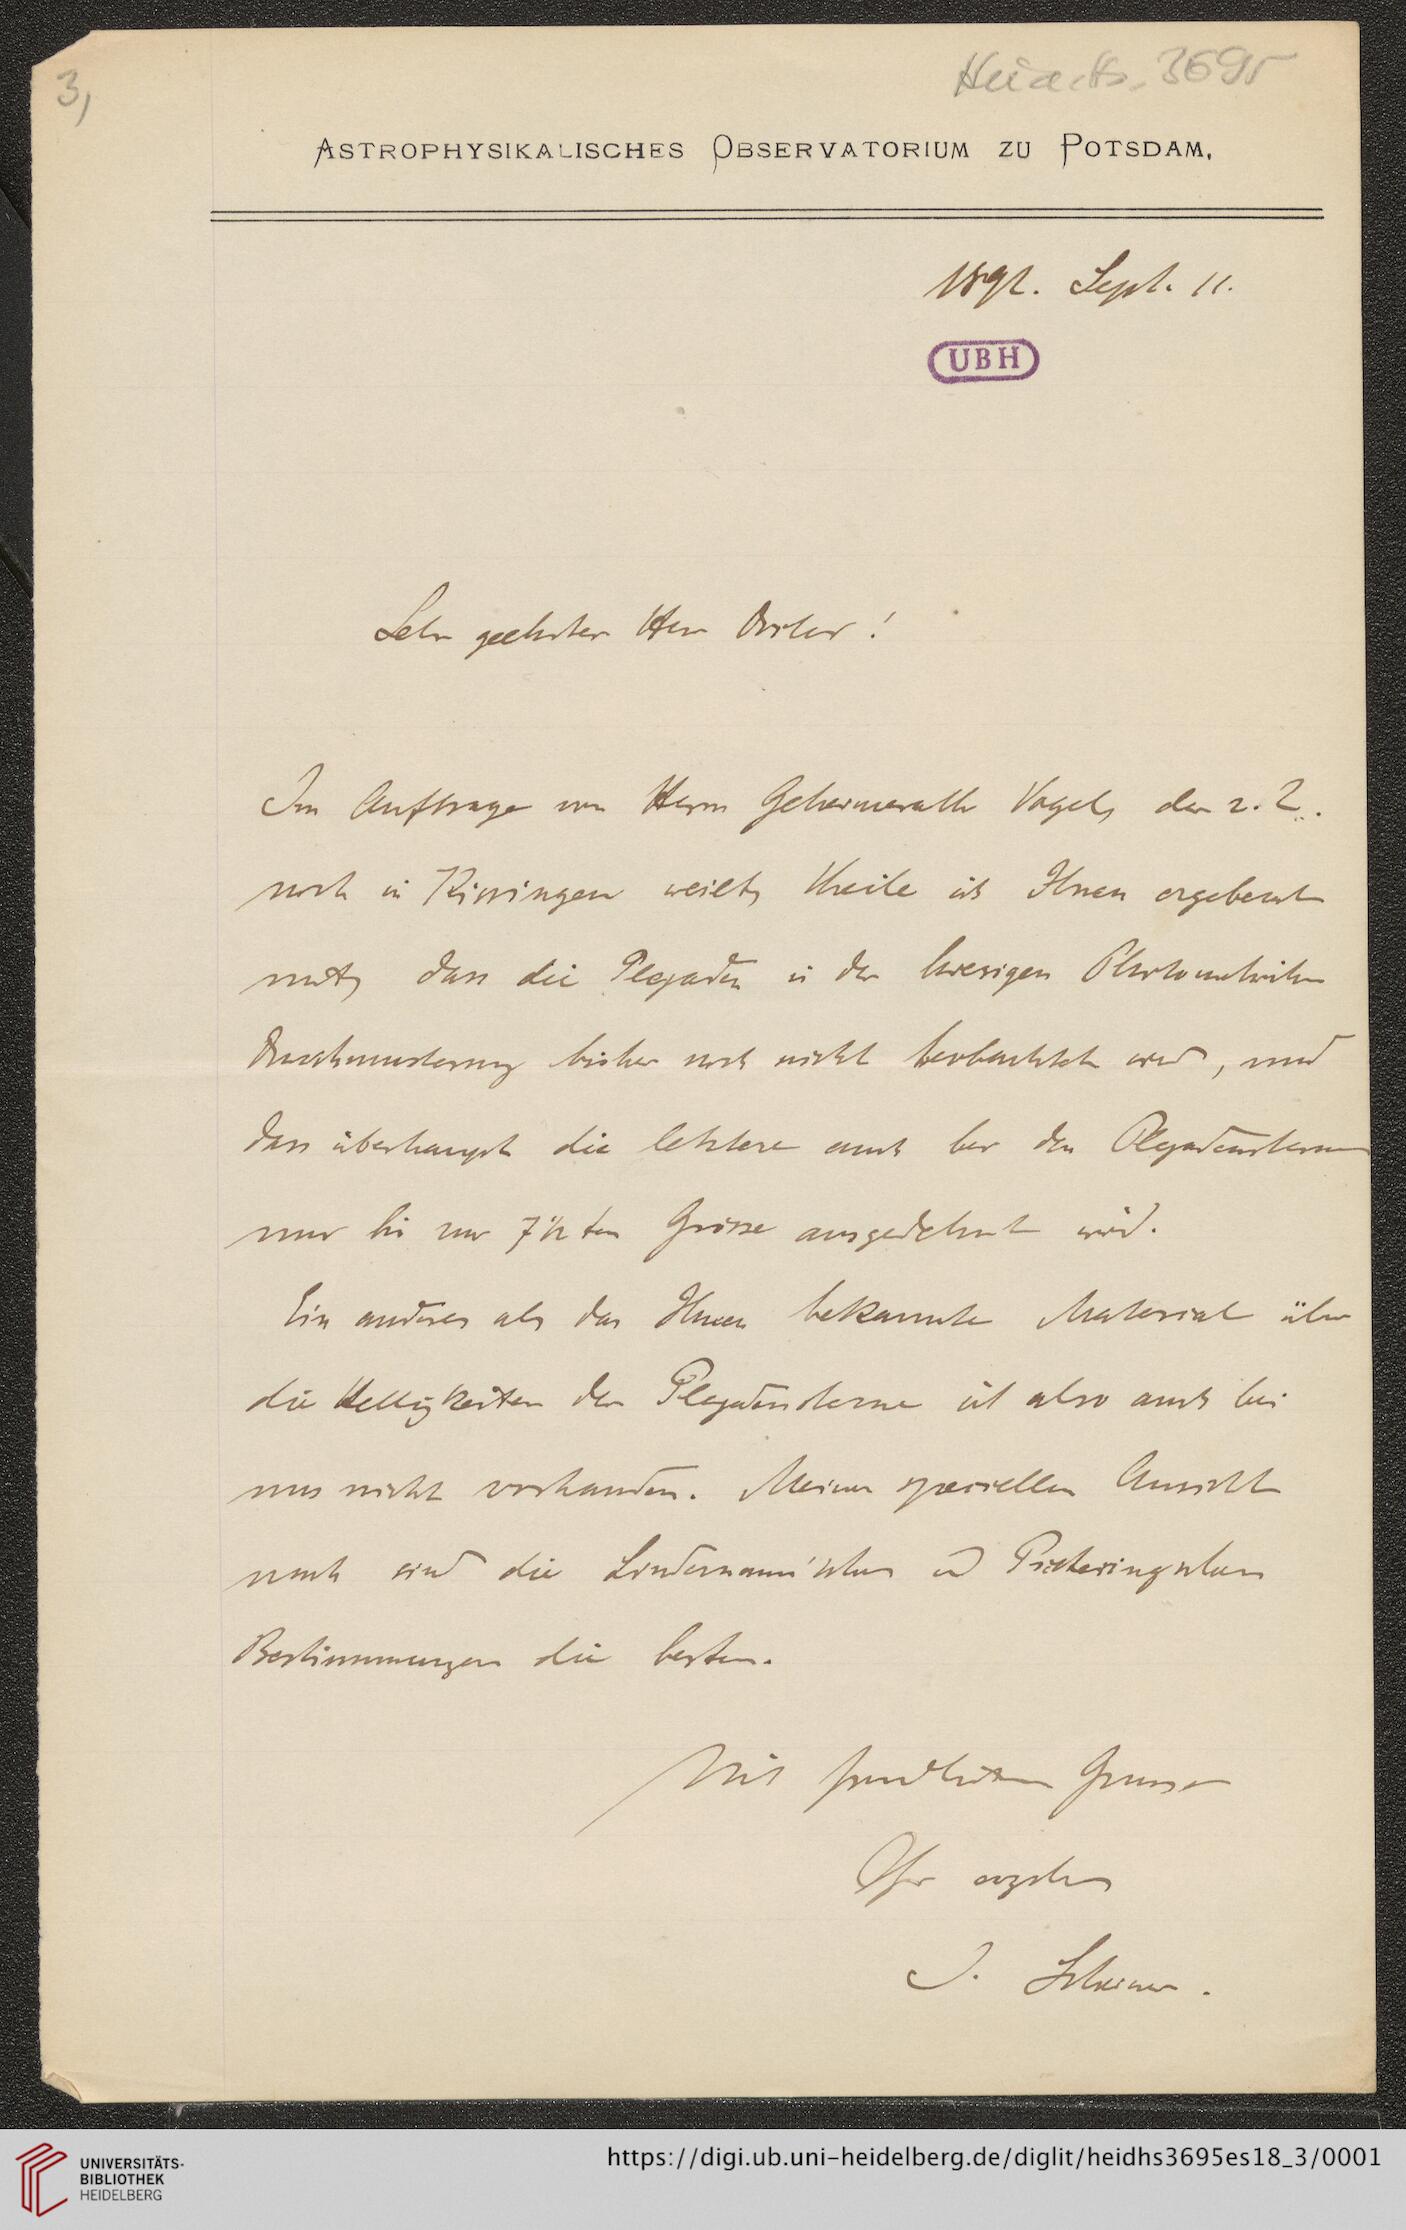 3,
Heid. Hs. 3695
ASTROPHYSIKALISCHES OBSERVATORIUM ZU POTSDAM.
Sept. 11.
UBH
Sehr geehrter Herr Doctor!
Im Auftrage von Herrn Geheimerath Vogel, der z. Z.
noch in Kissingen weilt, theile ich Ihnen ergebenst
mit, dass die Plejaden in der hiesigen Photometrischen
Durchmusterung bisher noch nicht beobachtet sind, und
dass überhaupt die letztere auch bei den Plejadensternen
nur bis zur 7½ten Grösse ausgedehnt wird.
Ein anderes als das Ihnen bekannte Material über
die Helligkeiten der Plejadensterne ist also auch bei
uns nicht vorhanden. Meiner speciellen Ansicht
nach sind die Lindemann'schen und Pickeringschen
Bestimmungen die besten.
Mit freundlichem Grusse
Ihr ergebener
J. Scheiner.
UNIVERSITÄTS-
BIBLIOTHEK
HEIDELBERG
https://digi.ub.uni-heidelberg.de/diglit/heidhs3695es18_3/0001